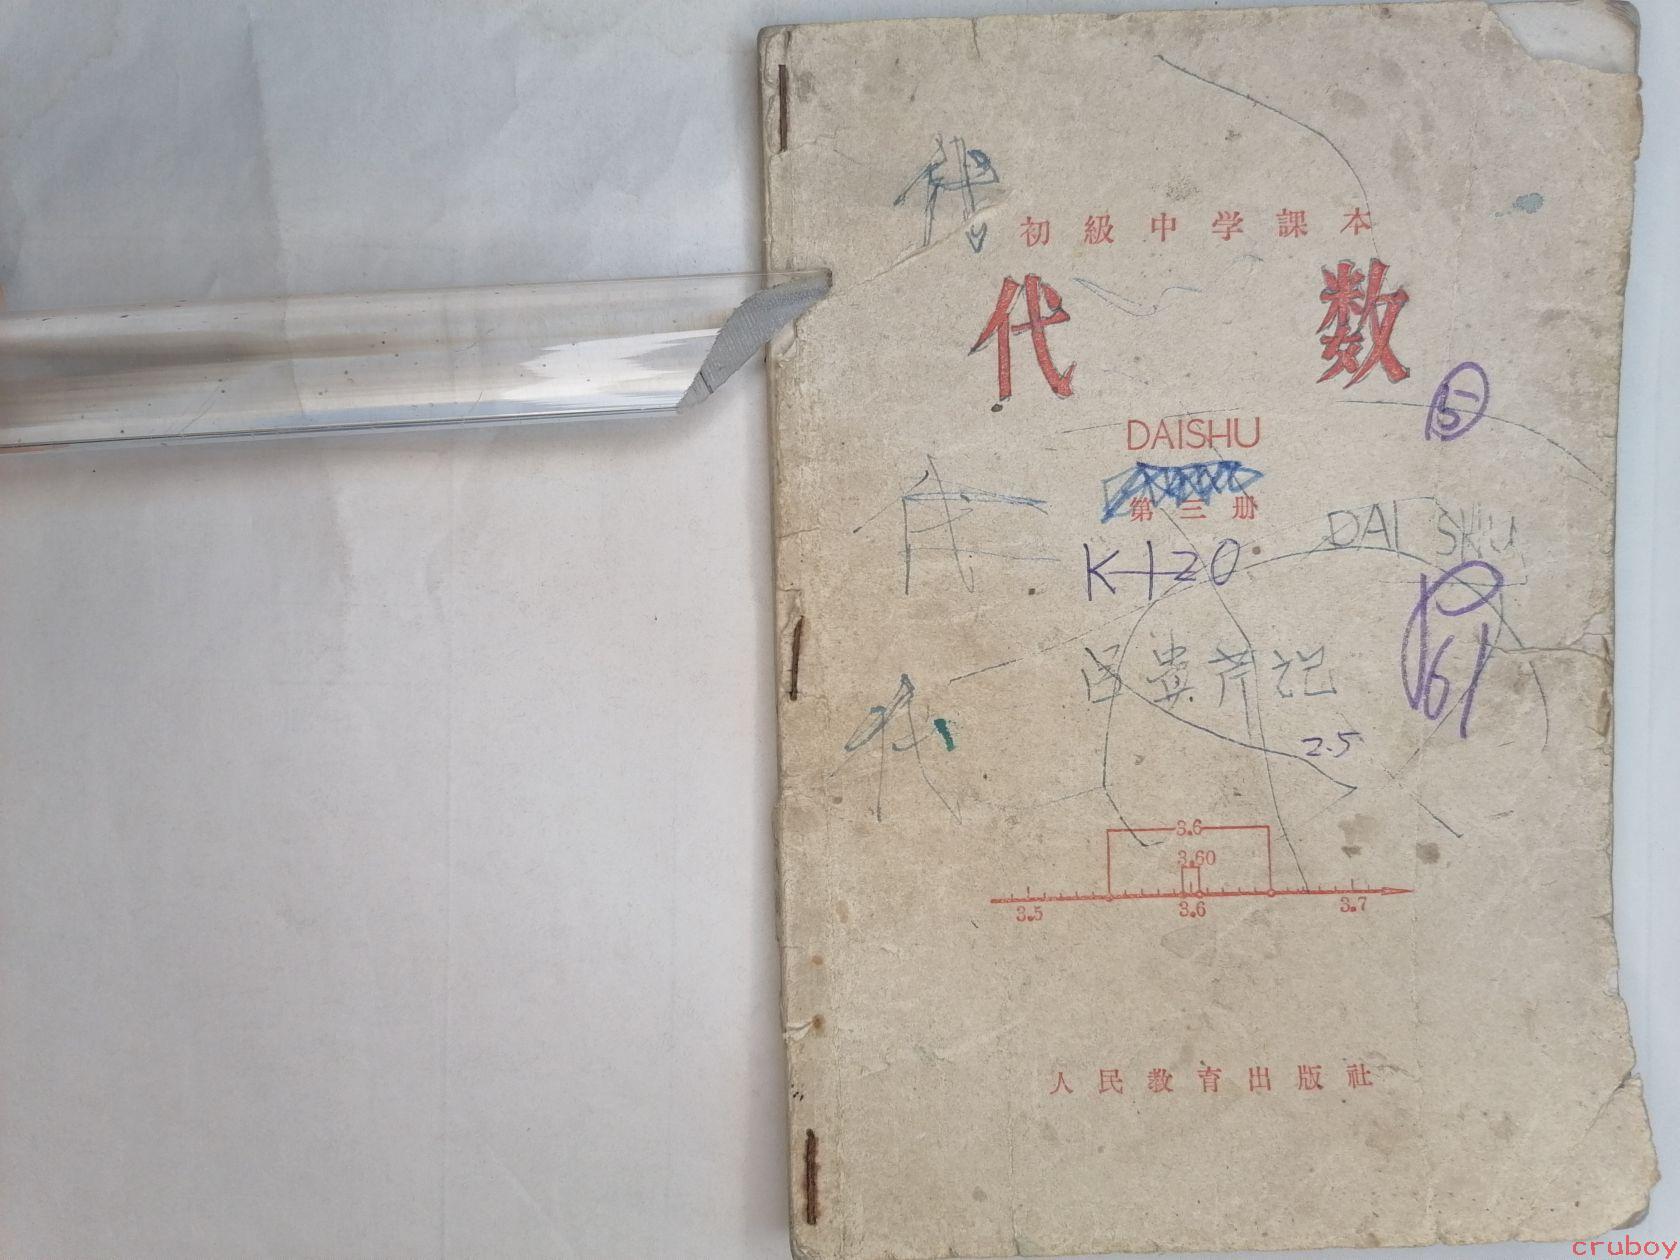 初級中学課本
代数
DAISHU
第三册
代
DAI SHU
K-120
代
61
2.5
3.6
3.60
3.5 3.6 3.7
人民教育出版社
cruboy